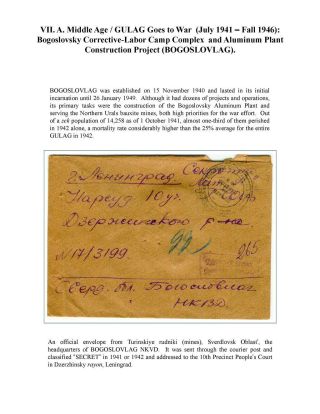 VII. A. Middle Age / GULAG Goes to War (July 1941 – Fall 1946):
Bogoslovsky Corrective-Labor Camp Complex and Aluminum Plant
Construction Project (BOGOSLOVLAG).
BOGOSLOVLAG was established on 15 November 1940 and lasted in its initial
incarnation until 26 January 1949. Although it had dozens of projects and operations,
its primary tasks were the construction of the Bogoslovsky Aluminum Plant and
serving the Northern Urals bauxite mines, both high priorities for the war effort. Out
of a zek population of 14,258 as of 1 October 1941, almost one-third of them perished
in 1942 alone, a mortality rate considerably higher than the 25% average for the entire
GULAG in 1942.
Секретно
г. Ленинград
Лит.
Нарсуд 10 уч.
Дзержинского р-на
22
265
№17/3199.
Сверд. Богословлаг
НКВД.
An official envelope from Turinskiye rudniki (mines), Sverdlovsk Oblast', the
headquarters of BOGOSLOVLAG NKVD. It was sent through the courier post and
classified "SECRET" in 1941 or 1942 and addressed to the 10th Precinct People's Court
in Dzerzhinsky rayon, Leningrad.